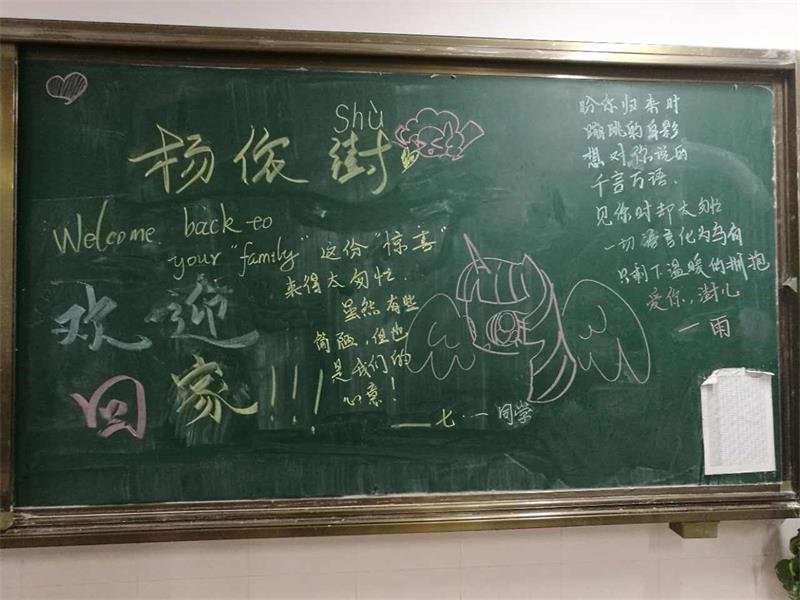 Shù
杨俊澍
Welcome back to
your "family" 这份"惊喜"
来得太匆忙
虽然有些
简陋,但也
是我们的
心意!
欢迎
回家!!!
——七·一同学
盼你归来时
蹦跳的身影
想对你说的
千言万语.
见你时却太匆忙
一切语言化为乌有
只剩下温暖的拥抱
爱你,澍儿
一雨